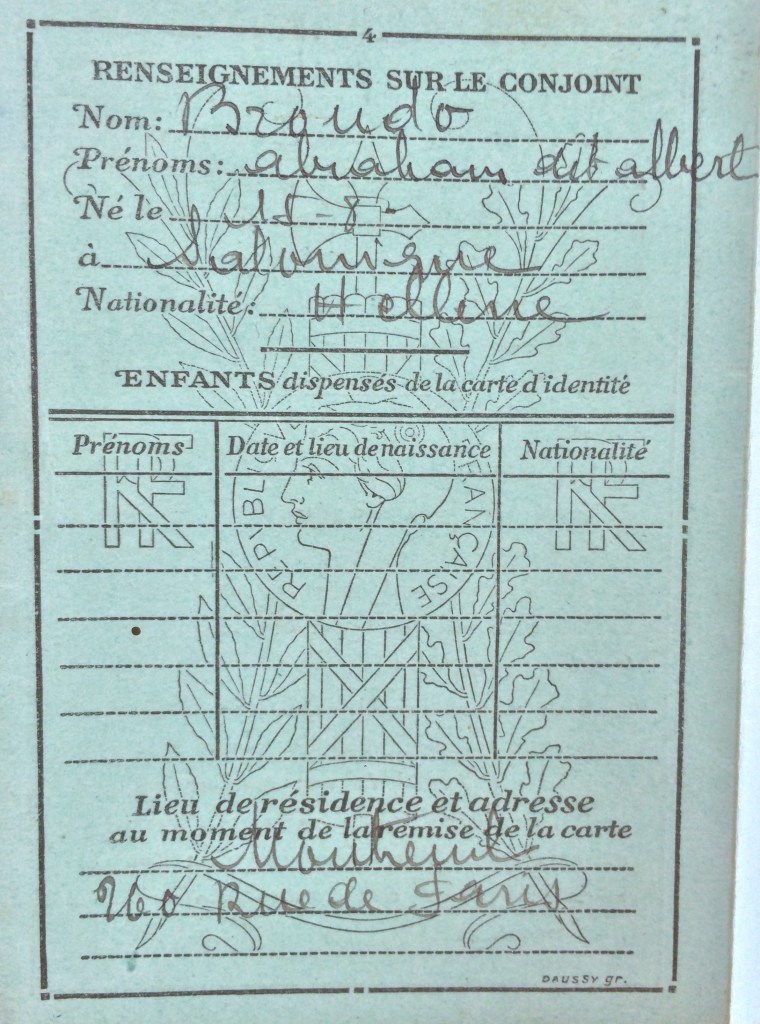 4
RENSEIGNEMENTS SUR LE CONJOINT
Nom: Broudo
Prénoms: abraham dit albert
Né le 15-8-
à Salonique
Nationalité: Hellene
ENFANTS dispensés de la carte d'identité
Prénoms Date et lieu de naissance Nationalité
RF RF
RÉPUBLIQUE FRANÇAISE
Lieu de résidence et adresse
au moment de la remise de la carte
Montreuil
260 Rue de Paris
DAUSSY gr.